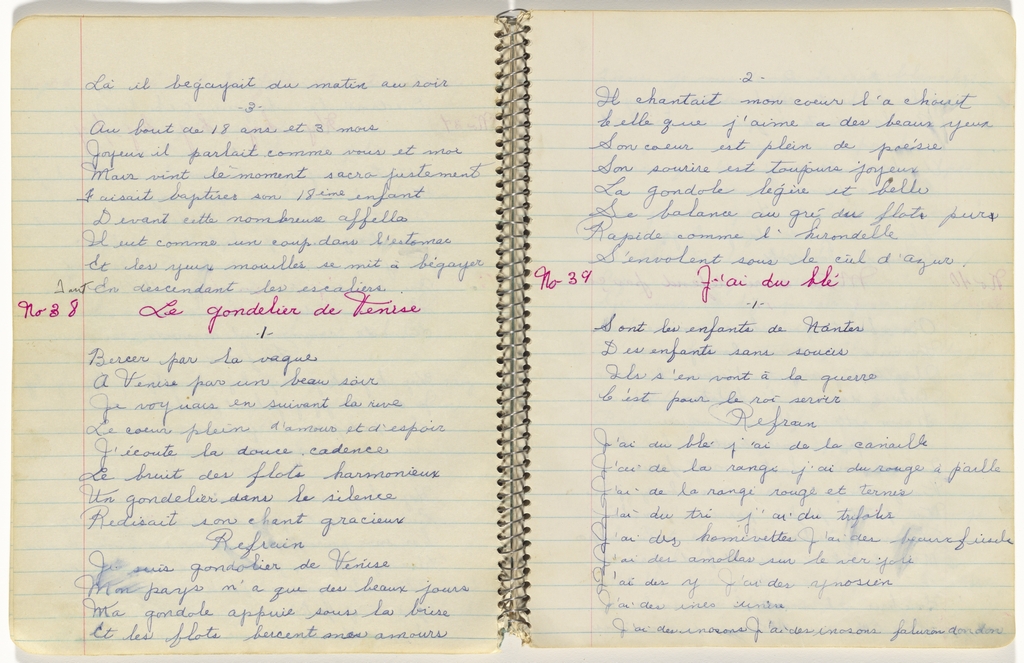 Là il begayait du matin au soir
-3-
Au bout de 18 ans et 3 mois
Joyeux il parlait comme vous et moi
Mais vint le moment sacro justement
Faisait baptises son 18ième enfant
Devant cette nombreuse affella
Il eut comme un coup dans l'estomac
Et les yeux mouilles se mit à bégayer
En descendant les escaliers.
No 38 Le gondelier de Venise
-1-
Bercer par la vague
A Venise par un beau soir
Je voyiais en suivant la rive
Le coeur plein d'amour et d'espoir
J'écoute la douce cadence
Le bruit des flots harmonieux
Un gondelier dans le silence
Redisait son chant gracieux
Refrain
Je suis gondolier de Venise
Mon pays n'a que des beaux jours
Ma gondole appuie sous la brise
Et les flots bercent mes amours
-2-
Il chantait mon coeur l'a choisit
Celle que j'aime a des beaux yeux
Son coeur est plein de poésie
Son sourire est toujours joyeux
La gondole legère et belle
Se balance au gré des flots purs
Rapide comme l'hirondelle
S'envolent sous le ciel d'azur.
No 39 J'ai du blé
-1-
Sont les enfants de Nantes
Des enfants sans soucis
Ils s'en vont à la guerre
C'est pour le roi servir
Refrain
J'ai du blé j'ai de la canaille
J'ai de la rangé j'ai du rouge à paille
J'ai de la rangé rouge et ternes
J'ai du tri j'ai du
J'ai des J'ai des
J'ai des sur le
J'ai des y J'ai des
J'ai des
J'ai des inosons J'ai des inosons dondon